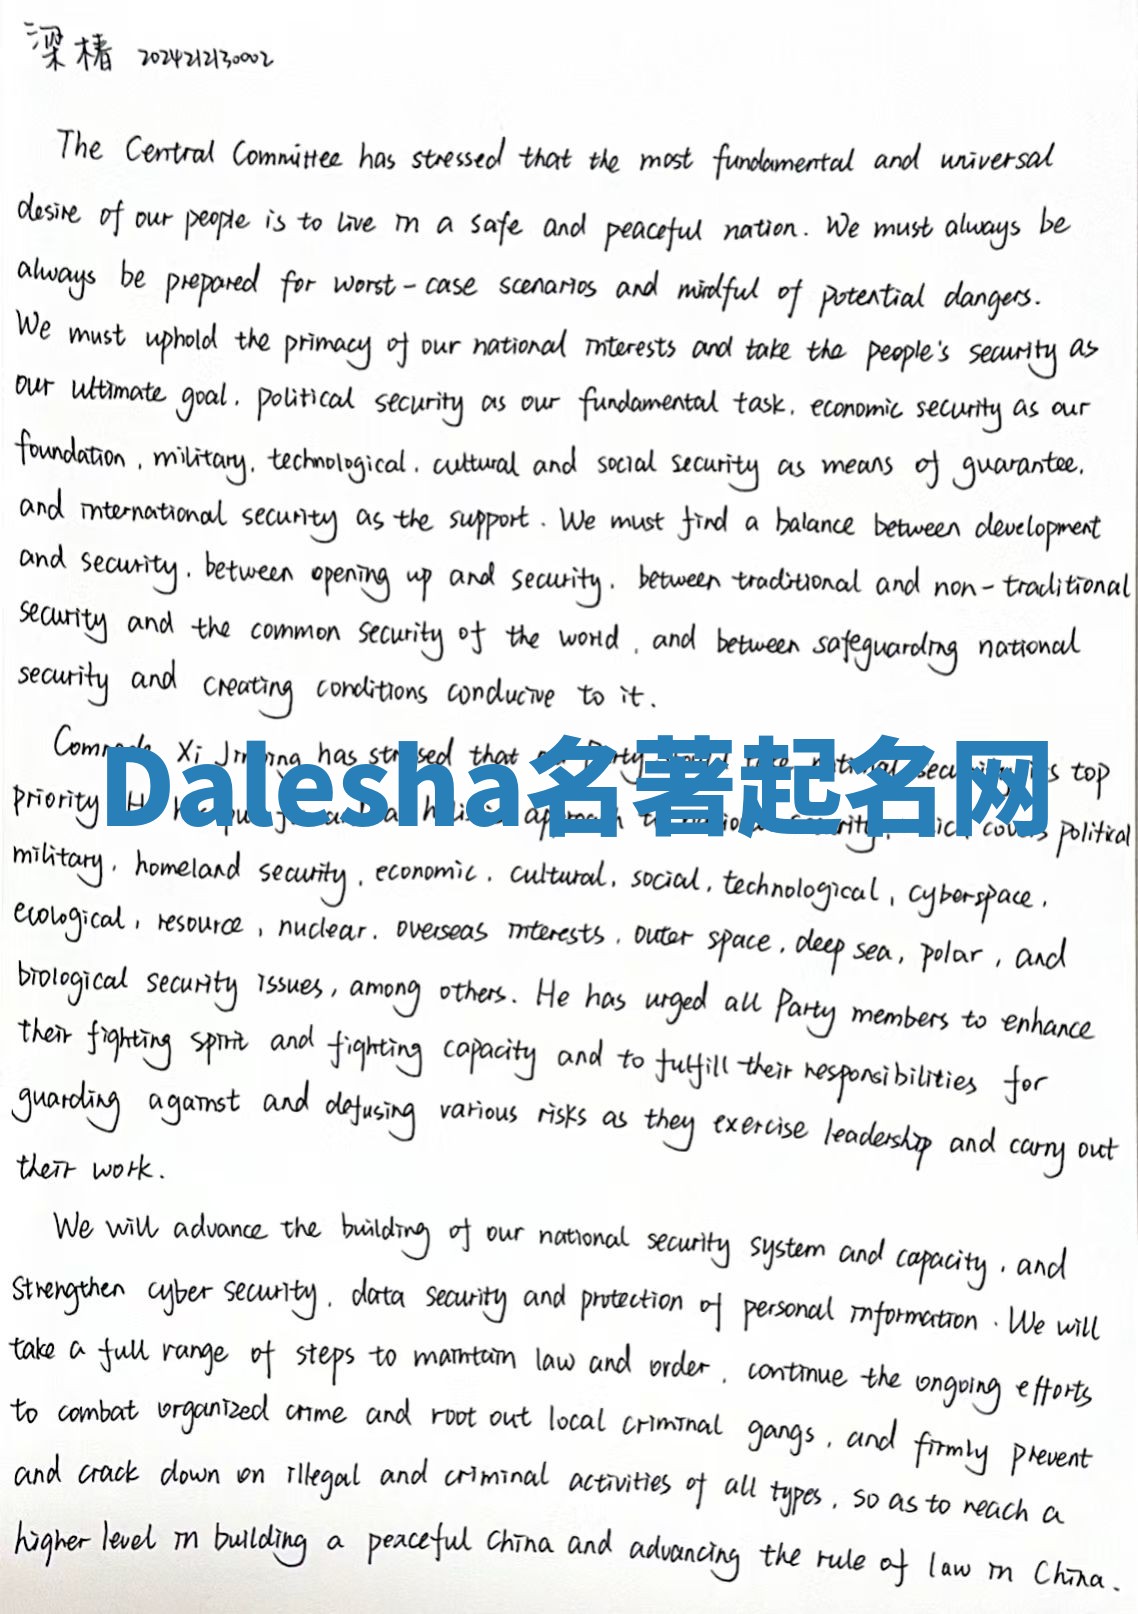 梁椿 2024212130002
The Central Committee has stressed that the most fundamental and universal
desire of our people is to live in a safe and peaceful nation. We must always be
always be prepared for worst-case scenarios and mindful of potential dangers.
We must uphold the primacy of our national interests and take the people's security as
our ultimate goal, political security as our fundamental task, economic security as our
foundation, military, technological, cultural and social security as means of guarantee,
and international security as the support. We must find a balance between development
and security, between opening up and security, between traditional and non-traditional
security and the common security of the world, and between safeguarding national
security and creating conditions conducive to it.
Xi Jinping has stressed that Party national security top
Dalesha名著起名网
priority political
military, homeland security, economic, cultural, social, technological, cyberspace,
ecological, resource, nuclear, overseas interests, outer space, deep sea, polar, and
biological security issues, among others. He has urged all Party members to enhance
their fighting spirit and fighting capacity and to fulfill their responsibilities for
guarding against and defusing various risks as they exercise leadership and carry out
their work.
We will advance the building of our national security system and capacity, and
strengthen cyber security, data security and protection of personal information. We will
take a full range of steps to maintain law and order, continue the ongoing efforts
to combat organized crime and root out local criminal gangs, and firmly prevent
and crack down on illegal and criminal activities of all types, so as to reach a
higher level in building a peaceful China and advancing the rule of law in China.